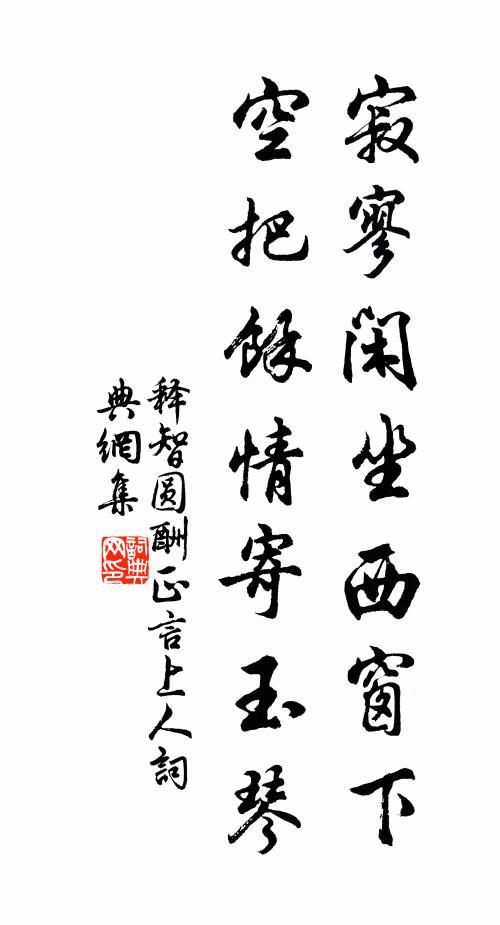 寂寥閑坐西窗下
空把餘情寄玉琴
释智圆酬正言上人詞
典網集
詞典
网印